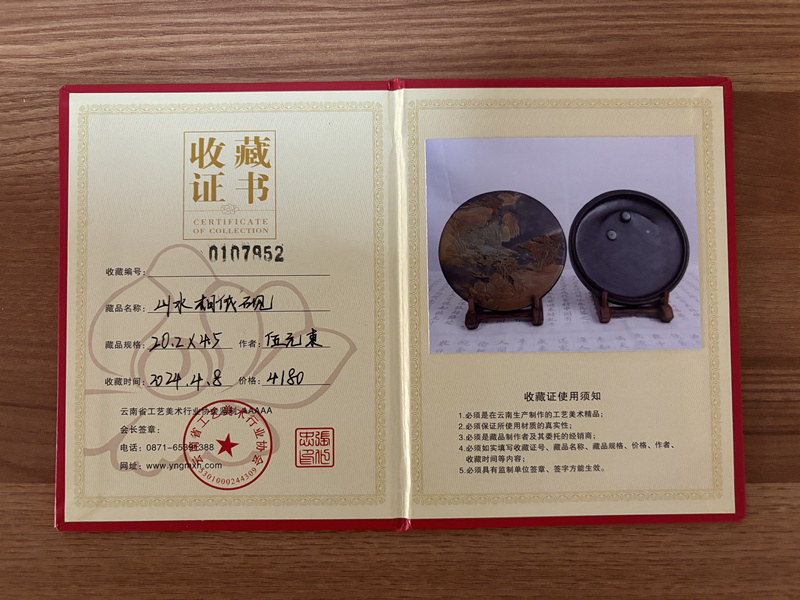 收藏
证书
CERTIFICATE
OF COLLECTION
0107952
收藏编号:
藏品名称: 山水相依砚
藏品规格: 20.2×4.5 作者: 伍元東
收藏时间: 2024.4.8 价格: 4180
云南省工艺美术行业协会监制 AAAAA
会长签章:
电话: 0871-65391388
网址: www.yngmxh.com
云南省工艺美术行业协会
5301000244309
收藏证使用须知
1.必须是在云南生产制作的工艺美术精品;
2.必须保证所使用材质的真实性;
3.必须是藏品制作者及其委托的经销商;
4.必须如实填写收藏证号、藏品名称、藏品规格、价格、作者、
收藏时间等内容;
5.必须具有监制单位签章、签字方能生效。